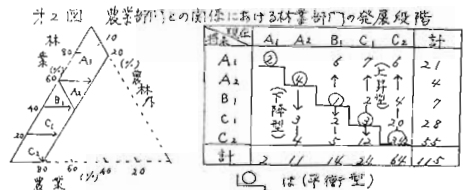 第2図 農業部門との関係における林業部門の発展段階
林業
(%)
80
60
40
20
A₁
A₂
B₁
C₁
C₂
10
20
(%)
農林外
80 60 (%) 40 20
農業
現在 A₁ A₂ B₁ C₁ C₂ 計
将来
A₁ ② 6 7 6 21
A₂ ④ ↑ ↑ (上昇型) ↑ 4
B₁ (下降型) 2 4 7
C₁ 3 2 ③ 20 28
C₂ 4 5 12 55
計 2 11 14 24 64 115
○は(平衡型)